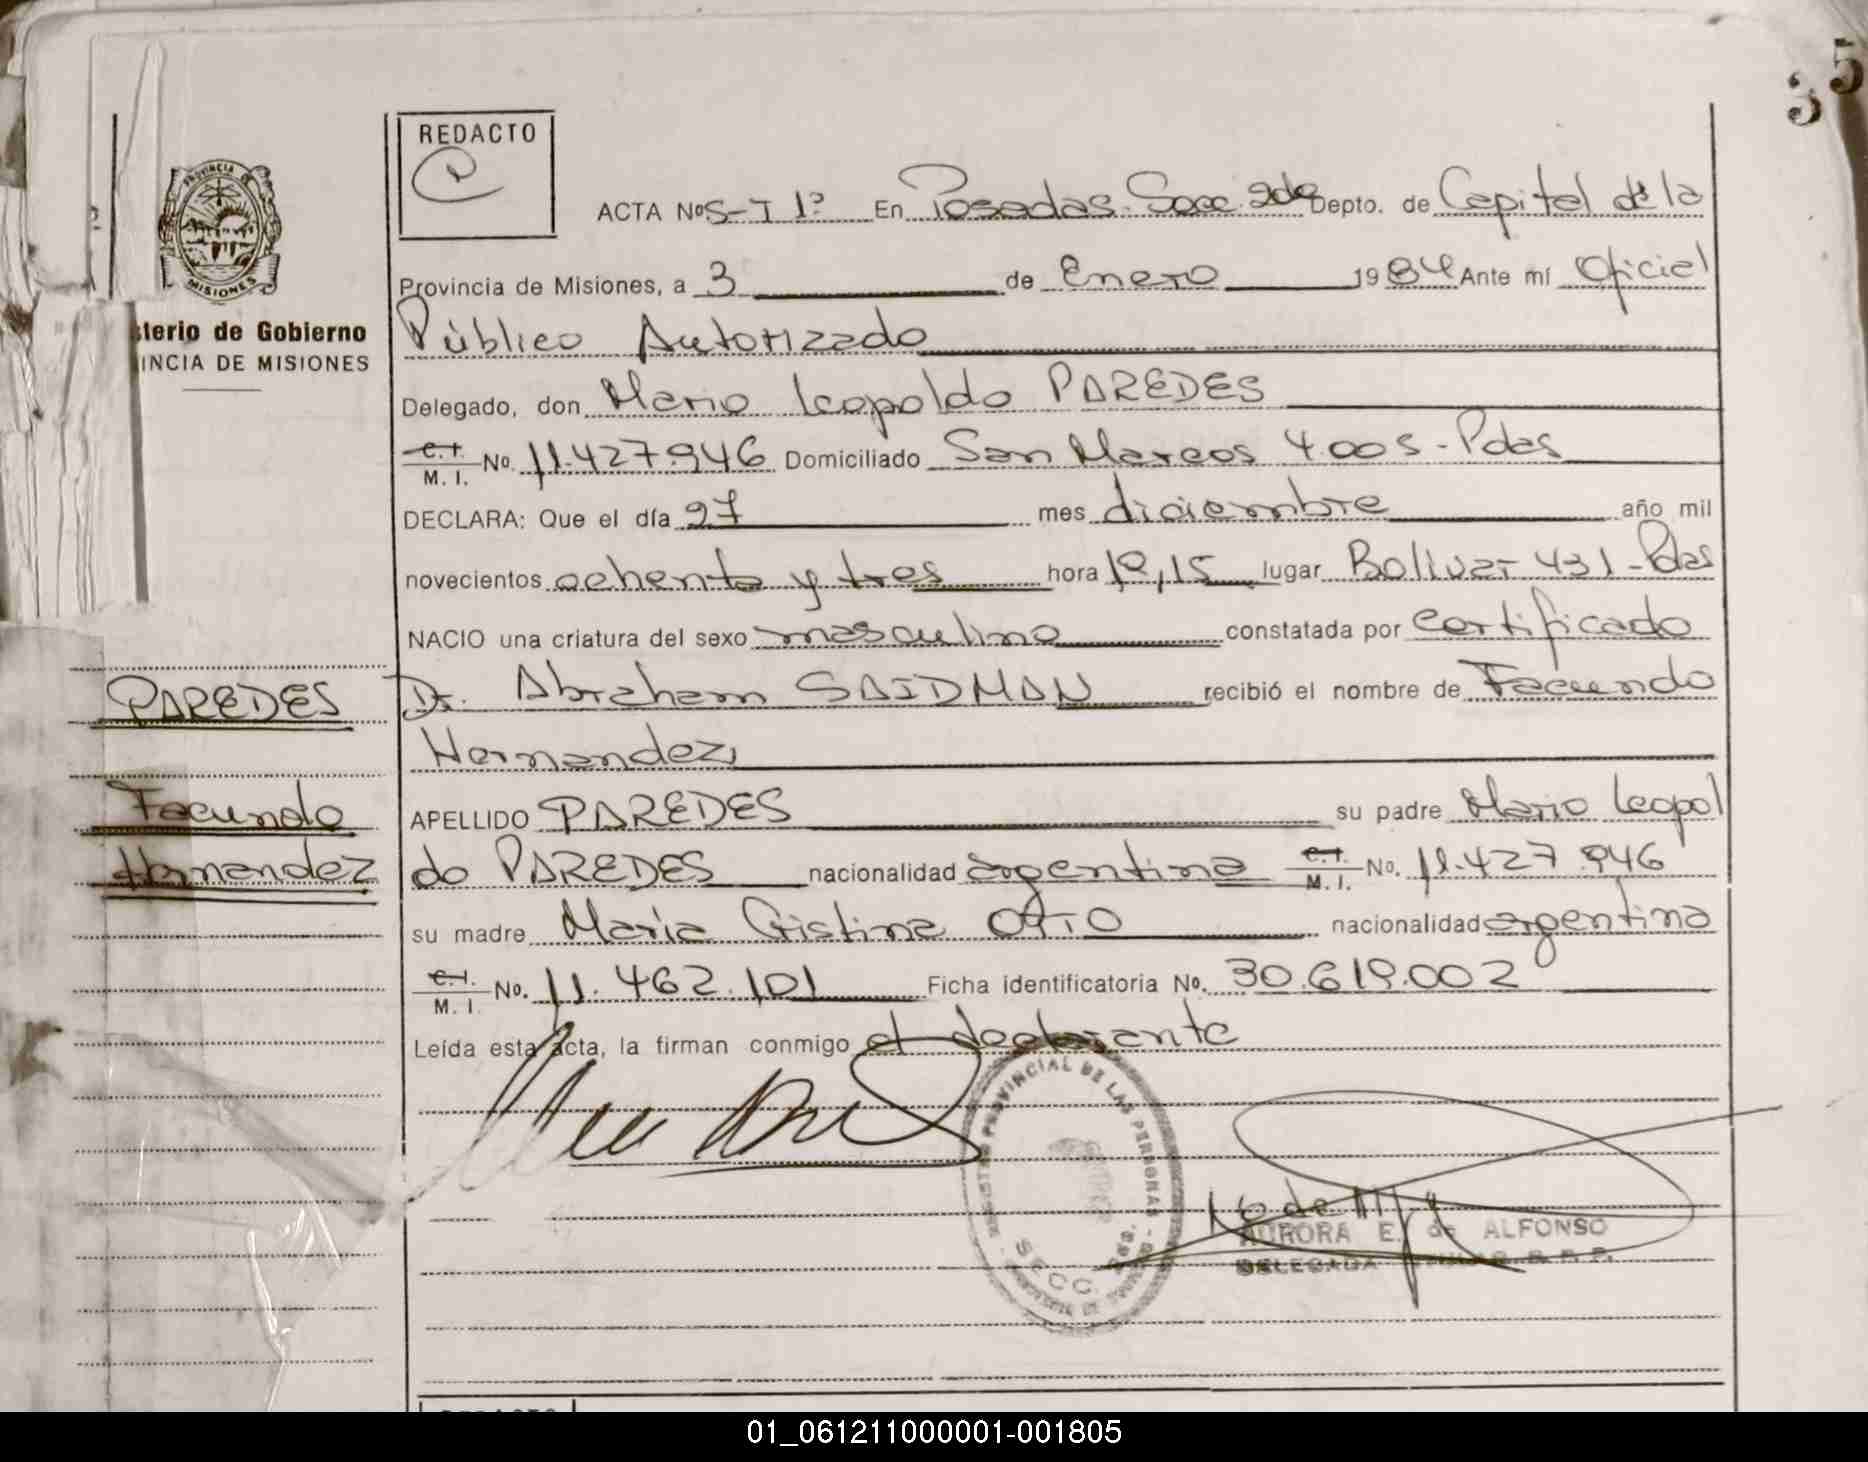 35
REDACTO
ACTA Nº 5-T 1º En Posadas. Secc. 2da Depto. de Capital de la
Provincia de Misiones, a 3 de Enero 1984 Ante mí Oficial
Público Autorizado
Delegado, don Mario Leopoldo PAREDES
C.I. M. I. No. 11.427.946 Domiciliado San Marcos 4.005-Pdas
DECLARA: Que el día 27 mes diciembre año mil
novecientos ochenta y tres hora 19,15 lugar Bolivar 431-Pdas
NACIO una criatura del sexo masculino constatada por certificado
Dr. Abraham SAIDMAN recibió el nombre de Facundo
Hernandez
APELLIDO PAREDES su padre Mario Leopol
do PAREDES nacionalidad argentina C.I. M. I. No. 11.427.946
su madre María Cristina OTTO nacionalidad argentina
C.I. M. I. No. 11.462.101 Ficha identificatoria No. 30.619.002
Leída esta acta, la firman conmigo el declarante
PROVINCIA DE
MISIONES
sterio de Gobierno
INCIA DE MISIONES
PAREDES
Facundo
Hernandez
PROVINCIAL DE LAS PERSONAS
SECC. 2da.
AURORA E. de ALFONSO
DELEGADA
01_061211000001-001805